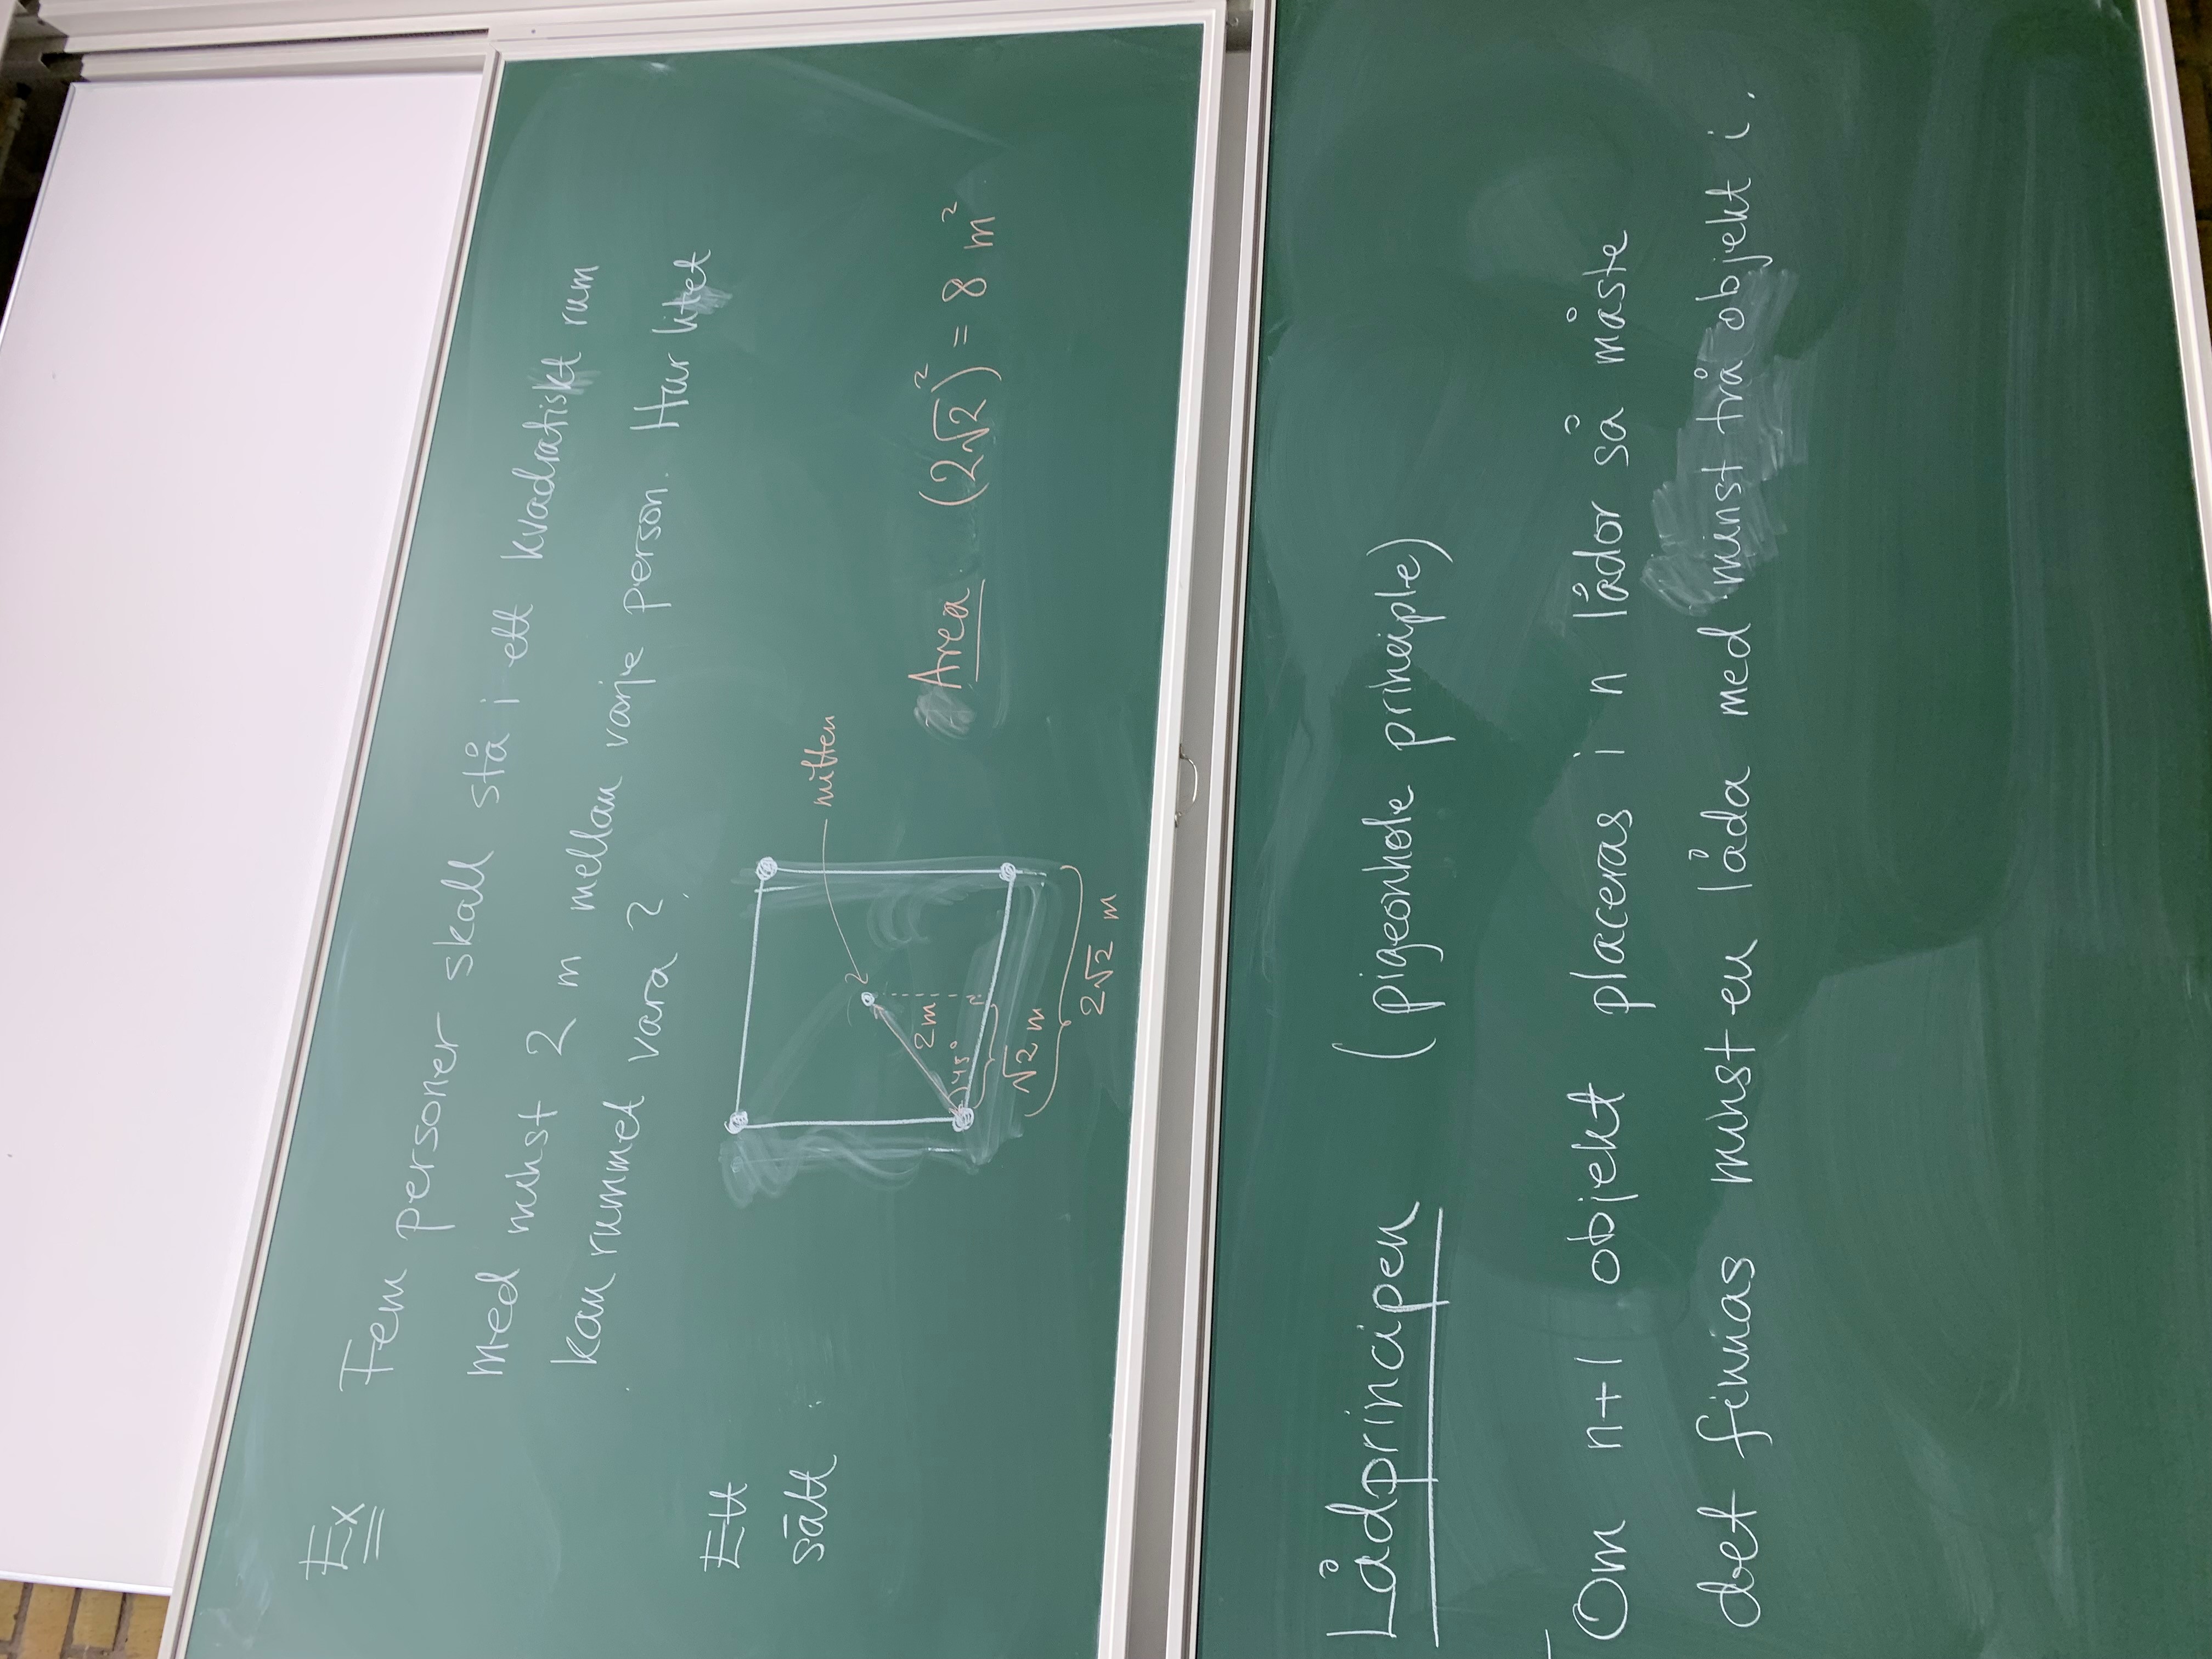 Ex Fem personer skall stå i ett kvadratiskt rum
med minst 2 m mellan varje person. Hur litet
kan rummet vara?
Ett
sätt:
mitten
2m
45°
√2 m
2√2 m
Area (2√2)² = 8 m²
Lådprincipen (pigeonhole principle)
Om n+1 objekt placeras i n lådor så måste
det finnas minst en låda med minst två objekt i.